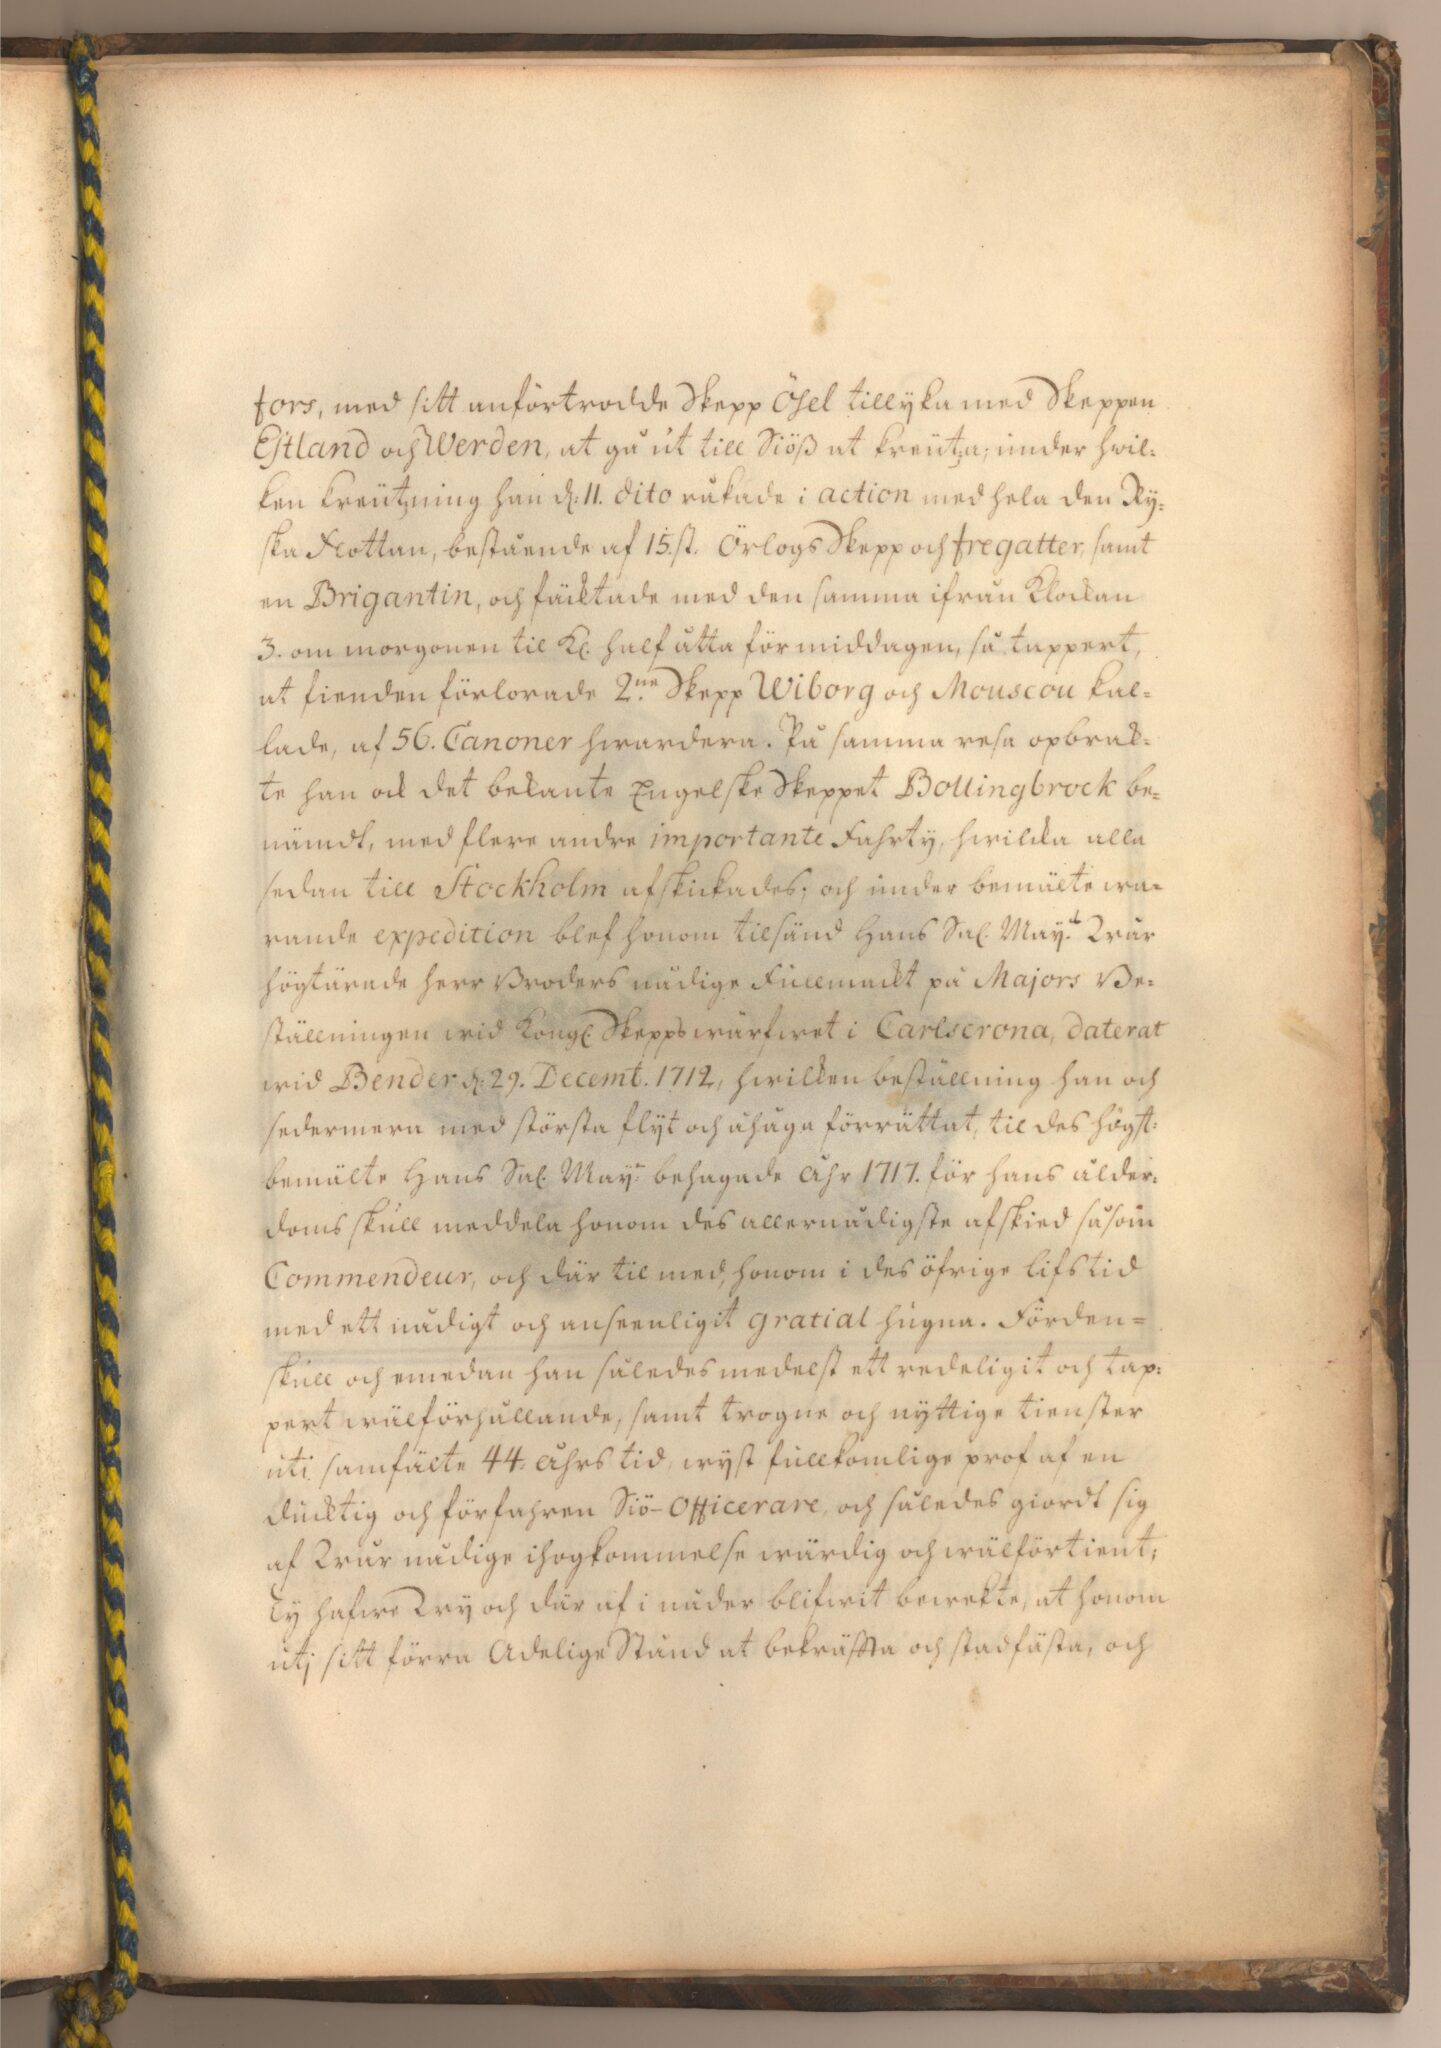 fors, med sitt anförtrodde Skepp Ösel tillyka med Skeppen
Estland och Werden, at gå ut till Siöß at kreutza; under hwil-
ken kreutzning han d. 11. dito råkade i action med hela den Ry-
ska Flottan, bestående af 15. st. Örlogs Skepp och fregatter, samt
en Brigantin, och fäcktade med den samma ifrån Klockan
3. om morgonen til Kl. half åtta förmiddagen, så tappert,
at fienden förlorade 2ne Skepp Wiborg och Mouscou kal-
lade, af 56. Canoner hwardera. På samma resa opbrak-
te han ock det bekante Engelske Skeppet Bollingbrock be-
nämdt, med flere andre importante Fahrty, hwilka alla
sedan till Stockholm afskickades; och under bemälte wa-
rande expedition blef honom tilsänd Hans Sal. Mayt. Wår
högtärade herr Broders nådige Fullmackt på Majors Be-
ställningen wid Kongl. Skeppswarfwet i Carlscrona, daterat
wid Bender d. 29. Decemt. 1712, hwilken beställning han och
sedermera med största flyt och åhåga förrättat, til des högst-
bemälte Hans Sal. May. behagade åhr 1717. för hans ålder-
doms skull meddela honom des allernådigste afskied såsom
Commendeur, och där til med, honom i des öfrige lifstid
med ett nådigt och anseenligit gratial hugna. Förden-
skull och emedan han således medelst ett redeligit och tap-
pert wälförhållande, samt trogne och nyttige tienster
uti samfälte 44. åhrs tid, wyst fullkomlige prof af en
ducktig och förfahren Siö-Officerare, och således giordt sig
af Wår nådige ihogkommelse wärdig och wälförtient;
Ty hafwe Wy och där af i nåder blifwit bewekte, at honom
utj sitt förra Adelige Stånd at bekräffta och stadfästa, och